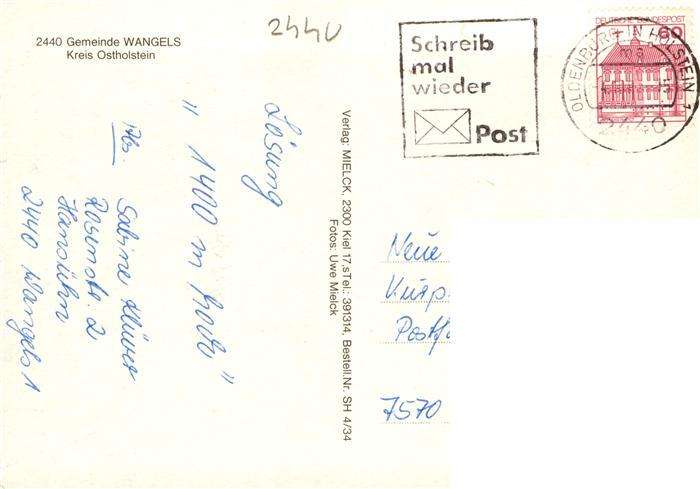 2440
2440 Gemeinde WANGELS
Kreis Ostholstein
Schreib
mal
wieder
Post
DEUTSCHE BUNDESPOST
60
OLDENBURG IN HOLSTEIN
2440
Lösung
" 1400 m hoch "
Abs
Sabine Klüver
Rosenstr. 2
Hansühn
2440 Wangels 1
Verlag: MIELCK, 2300 Kiel 17,sTel.: 391314, Bestell.Nr. SH 4/34
Fotos: Uwe Mielck
Neue
Kurp.
Postf
7570